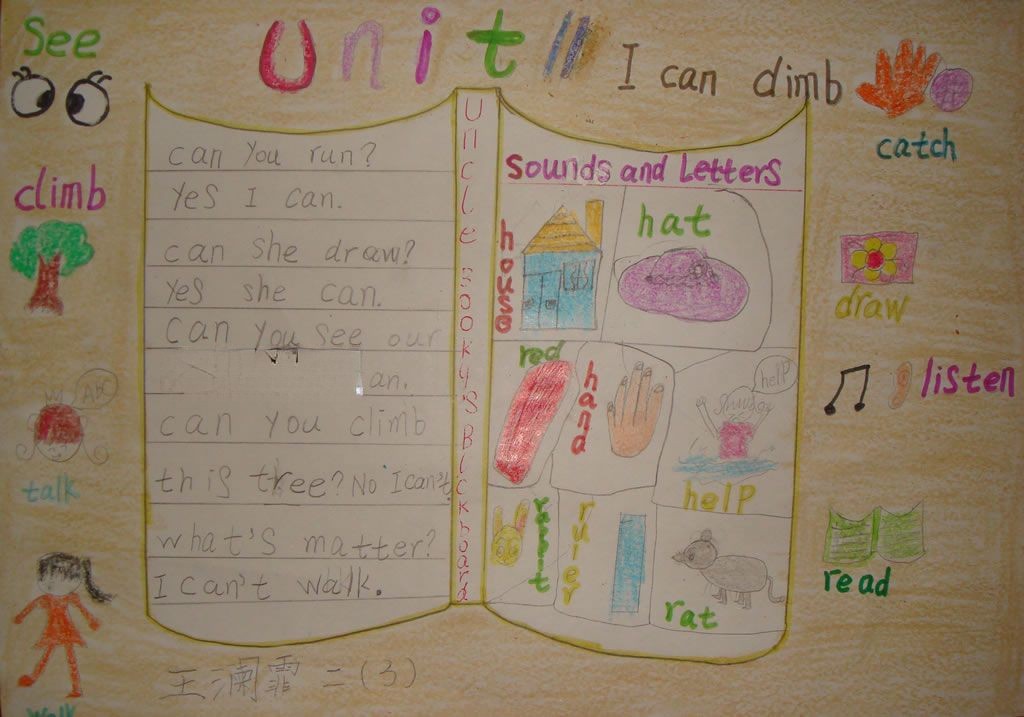 See
Unit 11
I can climb
catch
climb
draw
listen
talk
ABC
read
walk
can you run?
Yes I can.
can she draw?
Yes she can.
Can you see our
an.
can you climb
this tree? No I can't.
what's matter?
I can't walk.
Uncle Booky's Blackboard
Sounds and Letters
house
hat
red
hand
help
help
rabbit
ruler
rat
王 霏 二(3)